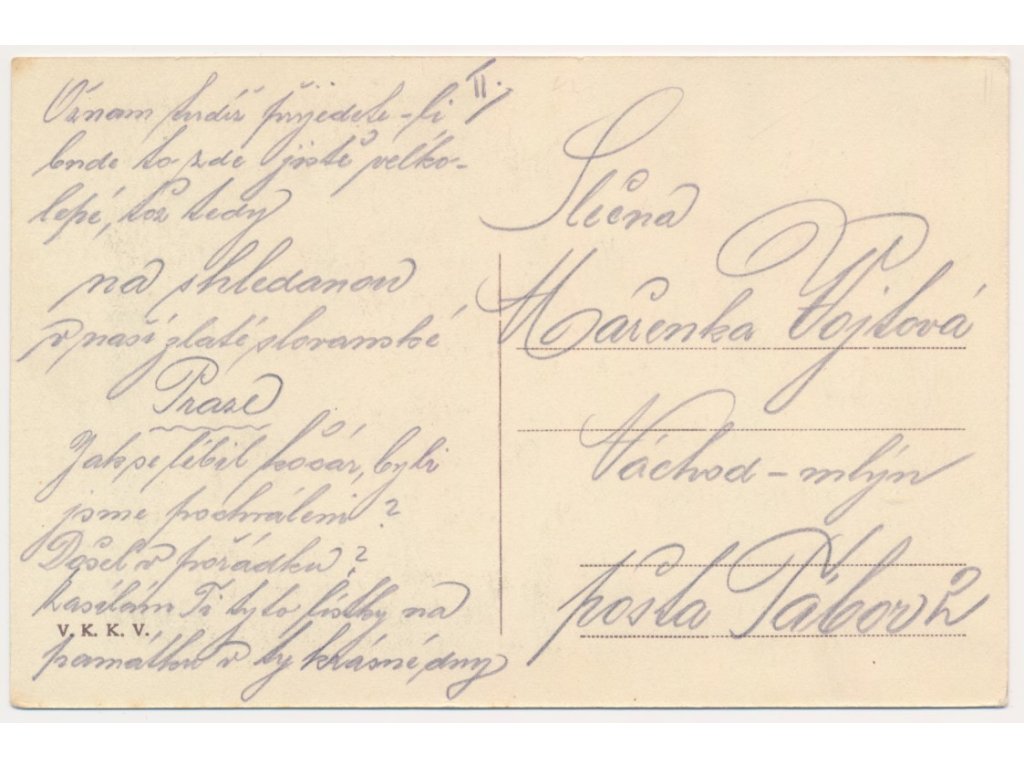 II.
Oznam tudíž přijedete-li
bude to zde jistě velko-
lepé, tož tedy
na shledanou
v naší zlaté slovanské
Praze
Jak se líbil kočár, byli
jsme pochváleni?
Došel v pořádku?
Zasílám Ti tyto lístky na
V. K. K. V.
památku v ty krásné dny
Slečna
Mařenka Vojtová
Náchod - mlýn
pošta Tábor 2